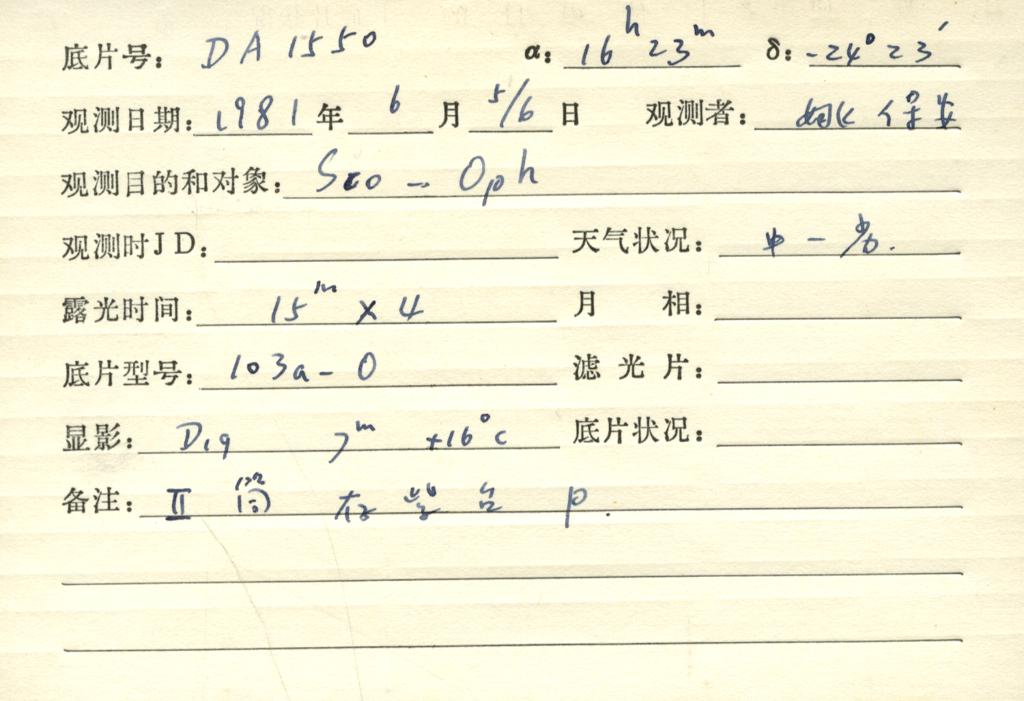 底片号: DA 1550 α: 16ʰ 23ᵐ δ: -24° 23′
观测日期: 1981 年 6 月 5/6 日 观测者: 姚保安
观测目的和对象: Sco - Oph
观测时JD: 天气状况: 中-劣.
露光时间: 15ᵐ × 4 月 相:
底片型号: 103a-O 滤光片:
显影: D19 7ᵐ +16°C 底片状况:
备注: II 筒 存紫台 p.